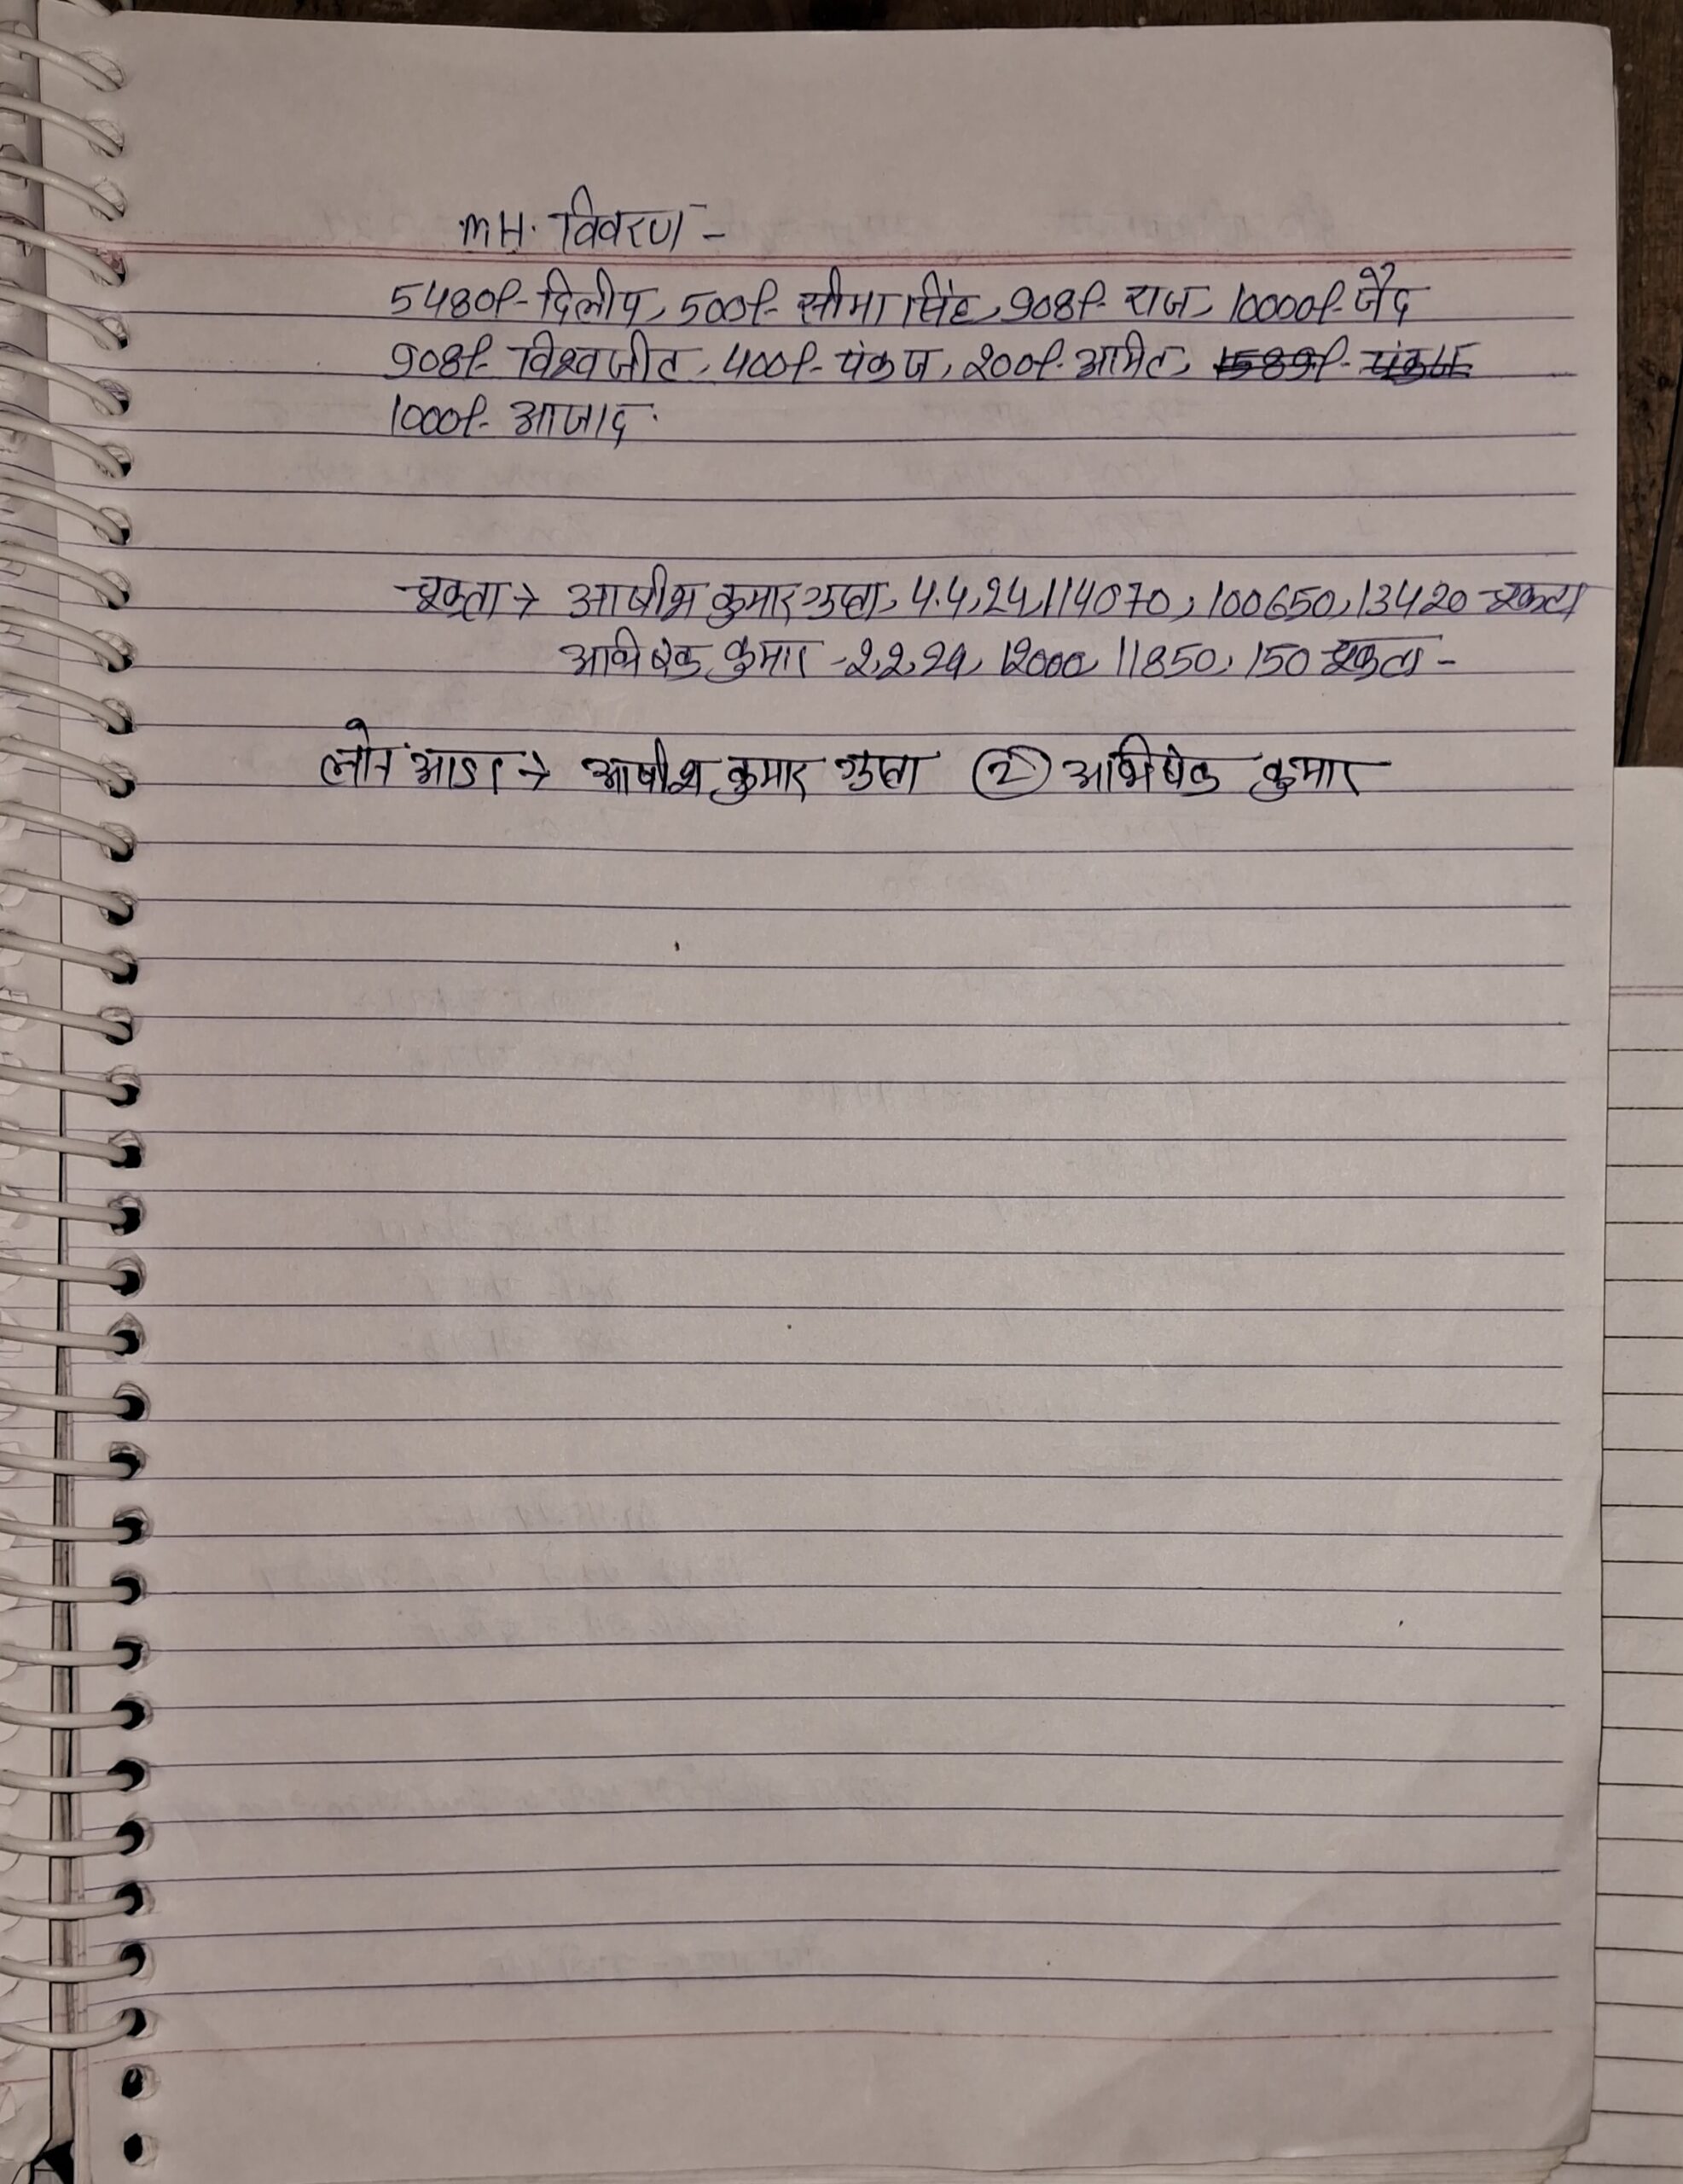 MH. विवरण -
5480/- दिलीप, 500/- सीमा सिंह, 908/- राज, 10000/- जैद
908/- विश्वजीत, 400/- पंकज, 200/- अमित, 1589/- पंकज
1000/- आजाद.
चुकता → आशीश कुमार गुप्ता, 4.4,24,114070, 100650,13420 चुकता
अभिषेक कुमार -2,2,24, 12000, 11850, 150 चुकता -
लोन आडा → आशीश कुमार गुप्ता ② अभिषेक कुमार